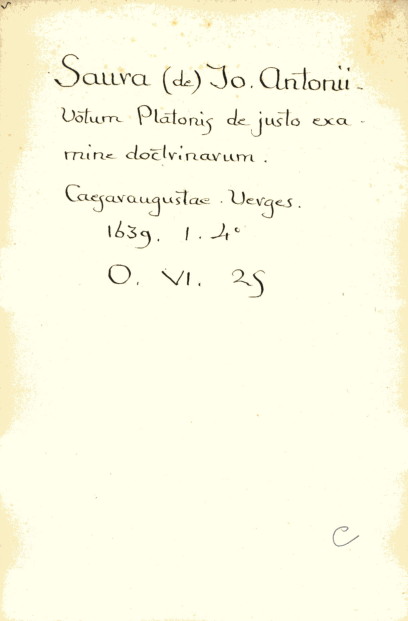 Saura (de) Jo. Antonii.
Votum Platonis de justo exa-
mine doctrinarum.
Caesaraugustae. Verges.
1639. 1. 4°
O. VI. 25
C